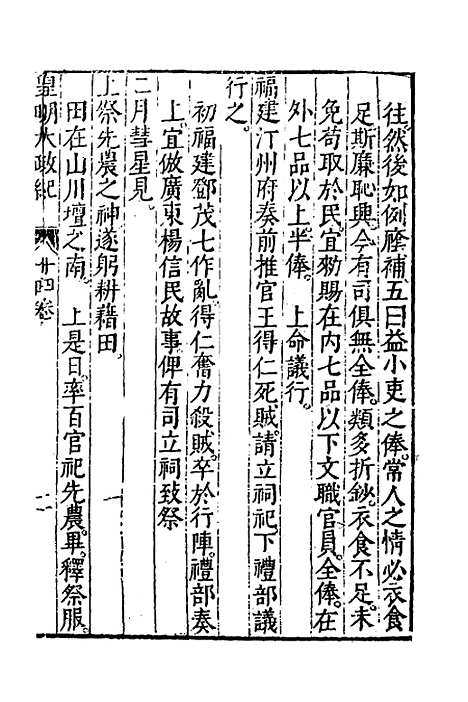 往。然後如例廕補。五曰益小吏之俸。常人之情必衣食
足斯廉恥興今有司俱無全俸。類多折鈔。衣食不足。未
免苟取於民。宜勑賜在内七品以下文職官員。全俸。在
外七品以上半俸。　上命議行。
福建汀州府奏前推官王得仁死賊。請立祠祀。下禮部議
行之。
初福建鄧茂七作亂。得仁奮力殺賊。卒於行陣。禮部奏
上。宜倣廣東楊信民故事俾有司立祠致祭
二月彗星見。
上祭先農之神。遂躬耕藉田。
田在山川壇之南。　上是日。率百官祀先農。畢。釋祭服。
皇明大政紀　廿四卷　二